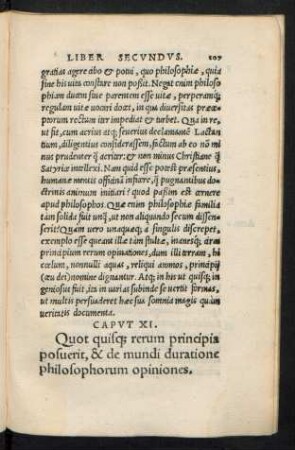 LIBER SECVNDVS. 107
gratias agere cibo & potui, quo philosophiæ, quia
sine his uita constare non possit. Negat enim philoso
phiam dicendam siue parentem esse uitæ, perperamq;
regulam uitæ uocari docet, in qua diuersitas præce
ptorum rectum iter impediat & turbet. Qua in re,
ut sit, cum acrius atq; seuerius declamantē Lactan
tium, diligentius considerassem, factum ab eo nō mi
nus prudenter q̃ acriter: & non minus Christiane q̃
Satyrice intellexi. Nam quid esse potest præsentius,
humanæ mentis officinā inflare, q̃ pugnantibus do
ctrinis animum imbui? quod passim est obuium
apud philosophos. Quæ enim philosophiæ familia
tam solida fuit unq̃, ut non aliquando secum dissen
serit? Quàm uero unaquæq; à singulis discrepet,
exemplo esse queant illæ tam stultæ, inanesq; de
principium rerum opinationes, dum illi terram, hi
cœlum, nonnulli aquas, reliqui annos, principia
(acq; deo) nomine dignantur. Atq; in his ut quisq; in
geniosus fuit, ita in uarias subinde se uertit formas,
ut multis persuaderet hæc sua somnia magis quàm
ueritatis documenta.
CAPVT XI.
Quot quisq; rerum principia
posuerit, & de mundi duratione
philosophorum opiniones.